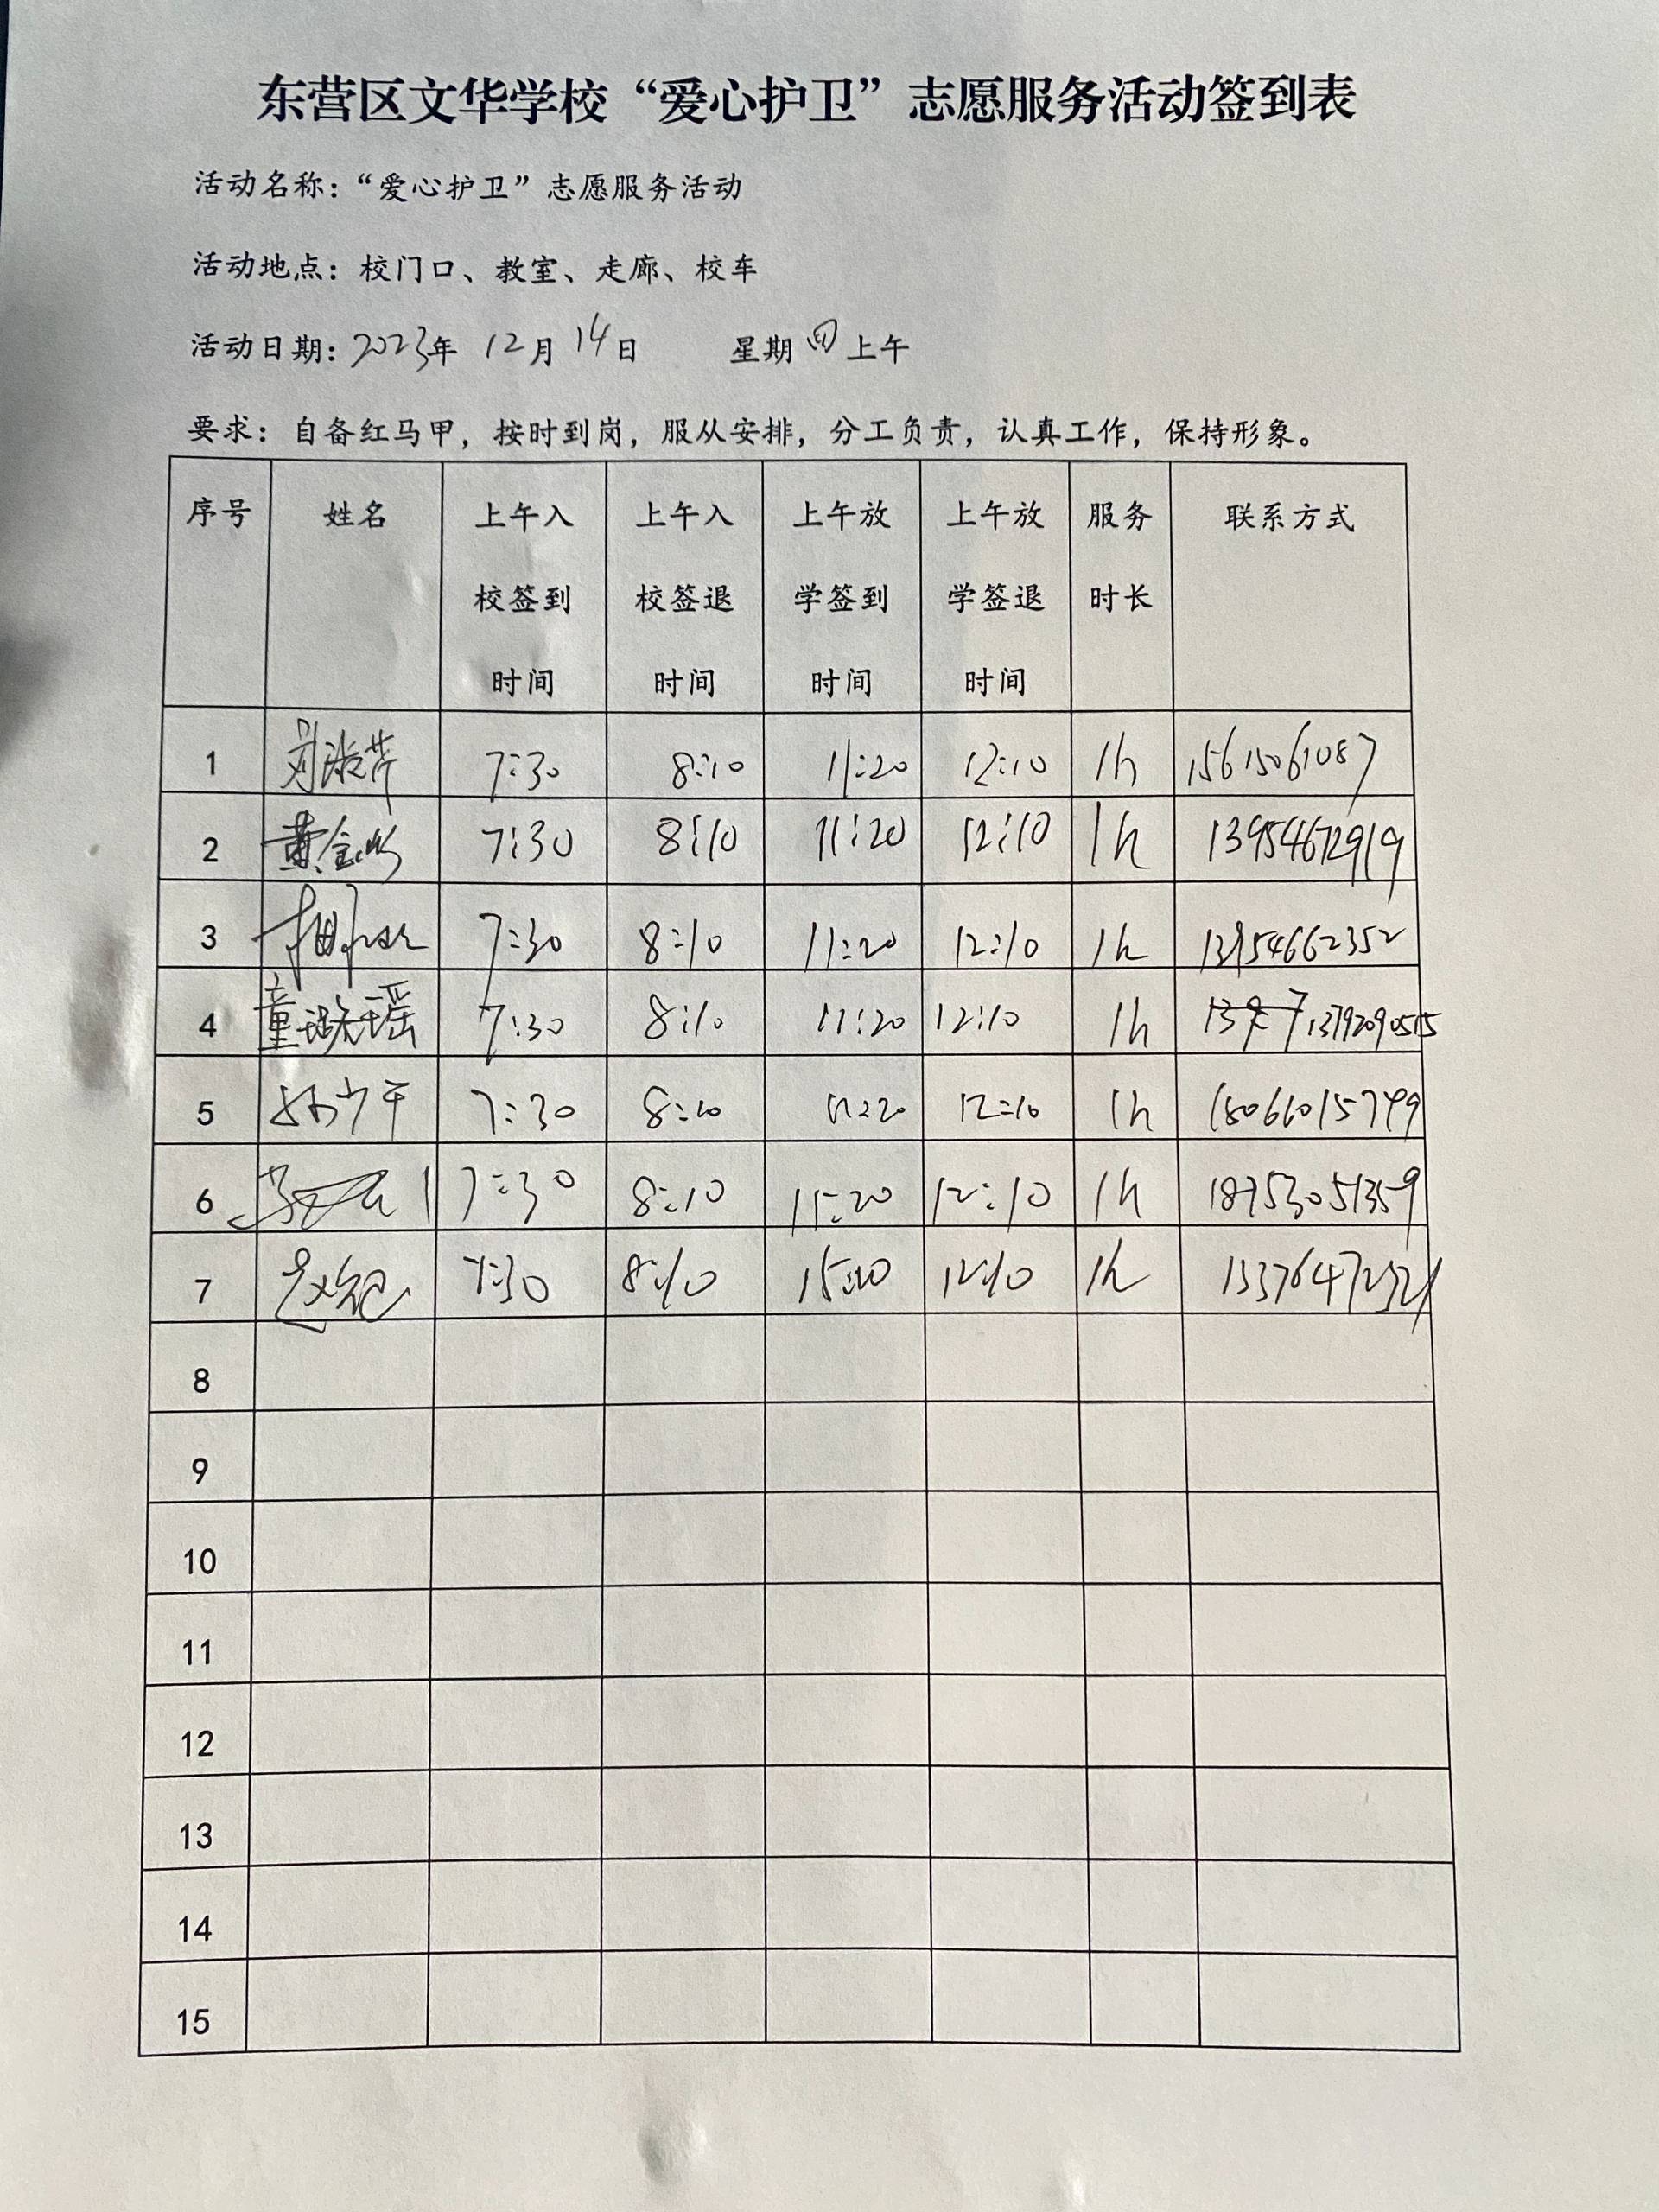 东营区文华学校“爱心护卫”志愿服务活动签到表
活动名称：“爱心护卫”志愿服务活动
活动地点：校门口、教室、走廊、校车
活动日期：2023年 12月 14日 星期四上午
要求：自备红马甲，按时到岗，服从安排，分工负责，认真工作，保持形象。
序号 姓名 上午入校签到时间 上午入校签退时间 上午放学签到时间 上午放学签退时间 服务时长 联系方式
1 刘淑芹 7:30 8:10 11:20 12:10 1h 15615061087
2 7:30 8:10 11:20 12:10 1h 13954672919
3 7:30 8:10 11:20 12:10 1h 13954662352
4 7:30 8:10 11:20 12:10 1h 13792090515
5 7:30 8:10 11:20 12:10 1h 18066015799
6 7:30 8:10 11:20 12:10 1h 18753051359
7 7:30 8:10 12:10 1h
8
9
10
11
12
13
14
15